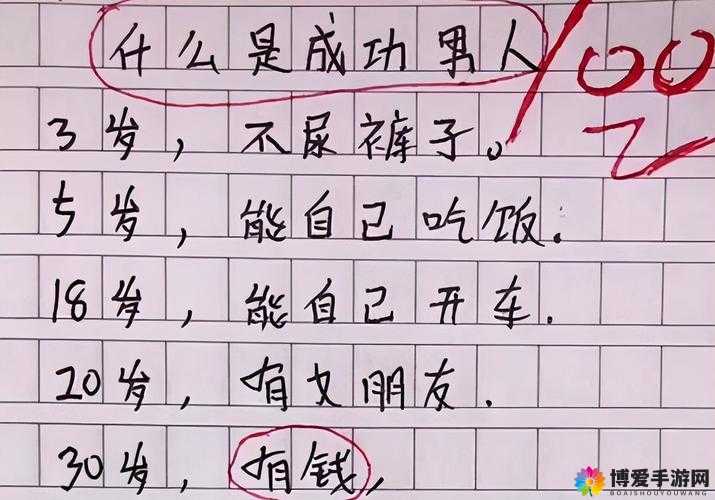 什么是成功男人
100
3岁，不尿裤子。
5岁，能自己吃饭.
18岁，能自己开车.
20岁，有女朋友.
30岁，有钱，
博爱手游网
BOAISHOUYOUWANG